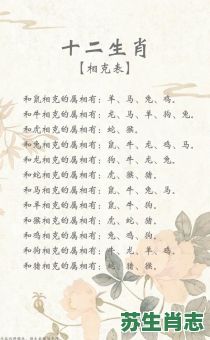 十二生肖
【相克表】
和鼠相克的属相有：羊、马、兔、鸡。
和牛相克的属相有：龙、马、羊、狗、兔。
和虎相克的属相有：蛇、猴。
和兔相克的属相有：鼠、牛、龙、鸡、马。
和龙相克的属相有：狗、牛、龙、兔。
和蛇相克的属相有：虎、猴、猪。
和马相克的属相有：鼠、牛、兔、马。
和羊相克的属相有：鼠、牛、狗。
和猴相克的属相有：虎、蛇、猪。
和鸡相克的属相有：兔、鸡、狗。
和狗相克的属相有：牛、龙、羊、鸡。
和猪相克的属相有：猪、蛇、猴。
苏生肖志